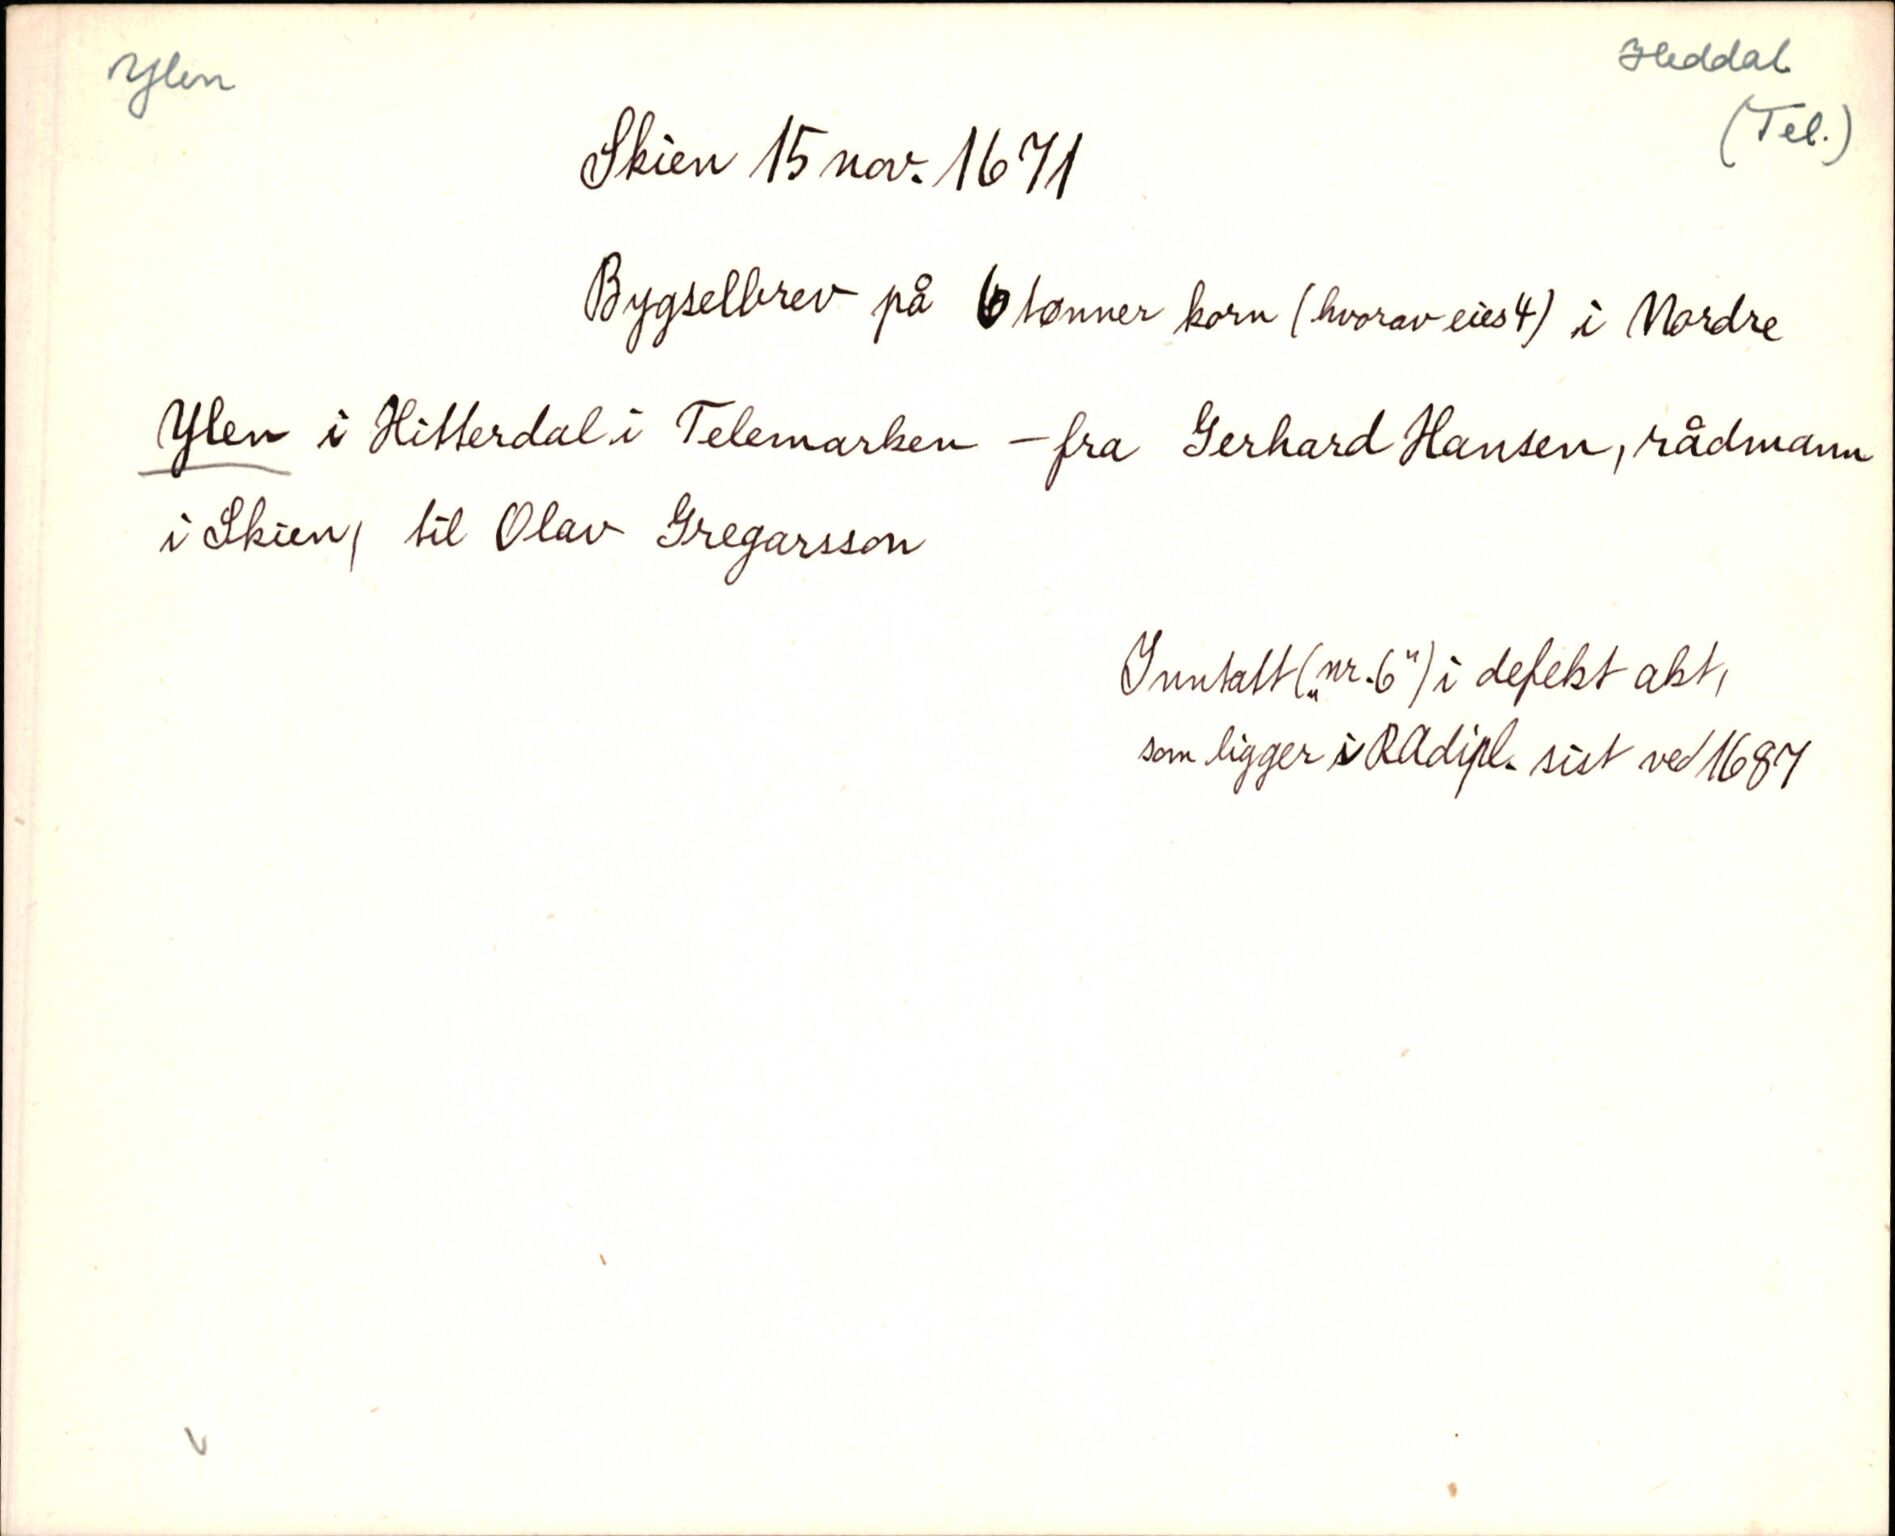 Ylen
Heddal
(Tel.)
Skien 15 nov. 1671
Bygselbrev på 6 tønner korn (hvorav eies 4) i Nordre
Ylen i Hitterdal i Telemarken - fra Gerhard Hansen, rådmann
i Skien, til Olav Gregarsson
Inntatt („nr. 6“) i defekt akt,
som ligger i RAdipl. sist ved 1687